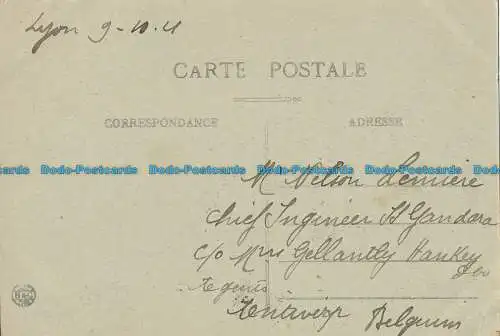 Lyon 9-10-21
CARTE POSTALE
CORRESPONDANCE
ADRESSE
Dodo-Postcards Dodo-Postcards Dodo-Postcards Dodo-Postcards Dodo-Postcards
Mr Nelson Lemiere
Chief Ingineer St Gandara
c/o Mrs Gellantly Hankey
Agents
Entwerp Belgium